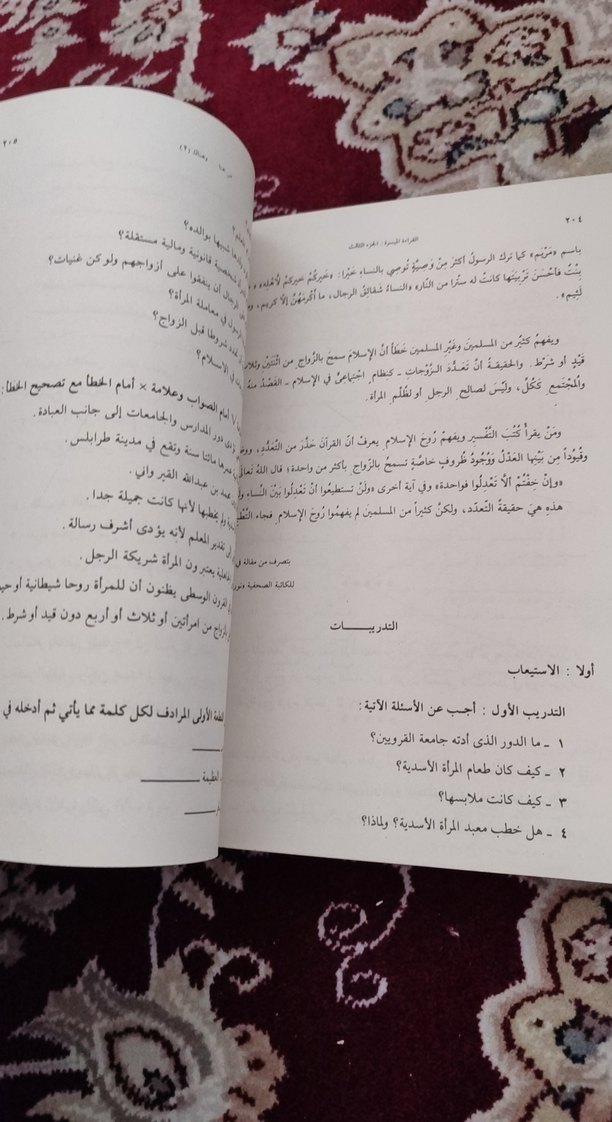 ٢٠٤
القراءة الميسرة : الجزء الثالث
باسم «مَرْيَم» كما تَرك الرسولُ أكثرَ مِنْ وَصِيَّةٍ تُوصِي بالنساءِ خَيْرا: «خَيرُكُمْ خيركمْ لأهْلِهِ»
بِنْتُ فأحْسَنَ تَرْبِيَتَها كانتْ له سِتْرا من النّارِ» «النساءُ شَقائقُ الرجال، ما أكْرَمَهُنَّ إلّا كريم،
لَئِيم».
ويفهمُ كثيرٌ من المسلمينَ وغَيْرِ المسلمين خَطَأً أنّ الإسلامَ سمحَ بالزَّواجِ من اثْنَتَيْنِ
قَيْدٍ أو شَرْط. والحقيقةُ أنَّ تَعَدُّدَ الزَّوْجاتِ ـ كنظامٍ اجْتِماعيٍّ في الإسلام ـ القَصْدُ منهُ
والمُجْتَمعِ كَكُلّ، ولَيْسَ لصالحِ الرجلِ أو لظُلْمِ المرأة.
ومَنْ يقرأُ كُتُبَ التَّفْسيرِ ويفهمُ رُوحَ الإسلامِ يعرفُ أنَّ القرآنَ حَذَّرَ من التَّعَدُّدِ،
وقُيُوداً مِن بَيْنِها العَدْلُ وَوُجُودُ ظُروفٍ خاصَّةٍ تَسمحُ بالزّواجِ بأكثر من واحدة؛ قال اللهُ
«وإنْ خِفْتُمْ ألاّ تَعْدِلُوا فواحدة» وفي آية أخرى «ولَنْ تستطيعُوا أنْ تَعْدِلُوا بَيْنَ النّساءِ
هذه هيَ حقيقةُ التعدّد، ولكنَّ كثيراً من المسلمين لم يفهمُوا رُوحَ الإسلام فجاء
بتصرف من مقالة في
للكاتبة الصحفية
التدريبـــــات
أولا : الاستيعاب
التدريب الأول : أجب عن الأسئلة الآتية :
١ ـ ما الدور الذى أدته جامعة القرويين؟
٢ ـ كيف كان طعام المرأة الأسدية؟
٣ ـ كيف كانت ملابسها؟
٤ ـ هل خطب معبد المرأة الأسدية؟ ولماذا؟
٢٠٥
شبيها بوالده؟
شخصية قانونية ومالية مستقلة؟
الرجال أن ينفقوا على أزواجهم ولو كن غنيات؟
في معاملة المرأة؟
شروطا قبل الزواج؟
في الإسلام؟
أمام الصواب وعلامة × أمام الخطأ مع تصحيح الخطأ:
دور المدارس والجامعات إلى جانب العبادة.
سنة وتقع في مدينة طرابلس.
بن عبدالله القيرواني.
يخطبها لأنها كانت جميلة جدا.
تقدير المعلم لأنه يؤدى أشرف رسالة.
يعتبرون المرأة شريكة الرجل.
القرون الوسطى يظنون أن للمرأة روحا شيطانية أو
من امرأتين أو ثلاث أو أربع دون قيد أو شرط.
الأولى المرادف لكل كلمة مما يأتي ثم أدخله في
العظيمة